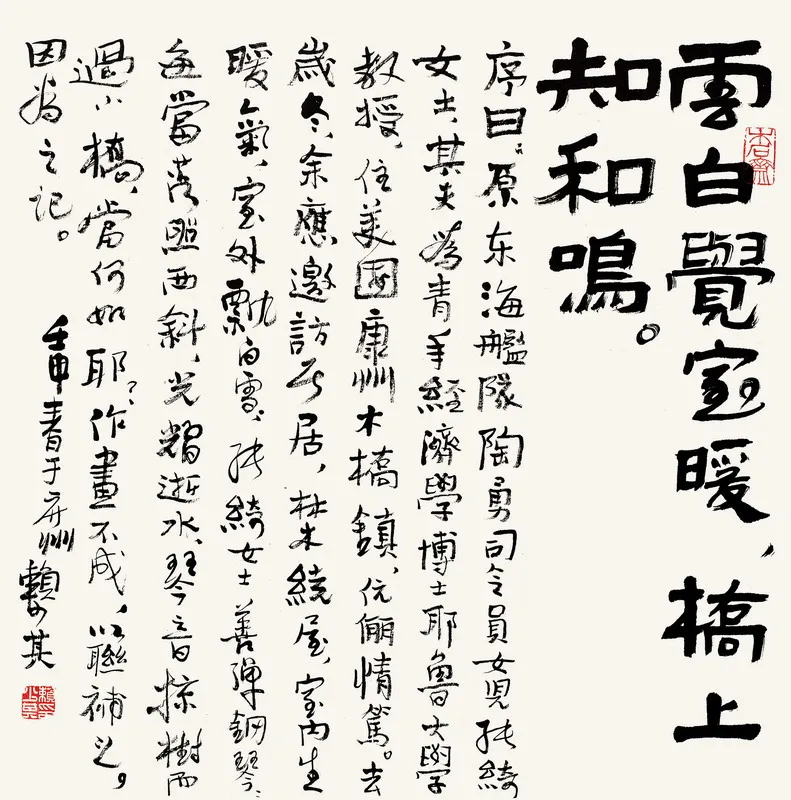 雪白覺室暖，橋上
知和鳴。
序曰：原东海艦隊陶勇司令員女兒張綺
女士，其夫為青年經濟學博士耶魯大學
教授，住美國康州木橋鎮，伉儷情篤。去
歲冬，余應邀訪其居，林木繞屋，室內生
暖氣，室外飄白雪，張綺女士善彈鋼琴，
每當落照西斜，光耀逝水，琴音掠樹而
過小橋，當何如耶？作畫不成，以聯補之，
因為之記。
壬申春于广州 賴少其
木石齋